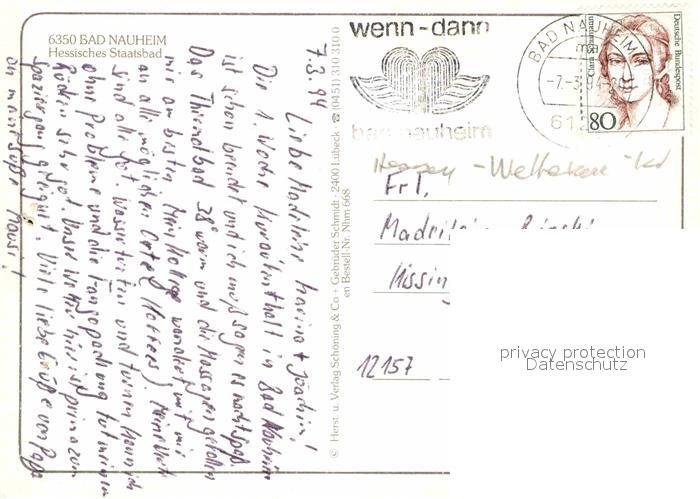 6350 BAD NAUHEIM
Hessisches Staatsbad
7.3.94
Liebe Madeleine, Karina + Joachim!
Die 1. Woche Kuraufenthalt in Bad Nauheim
ist schon beendet und ich muß sagen es macht Spaß.
Das Thermalbad 38° warm und die Massagen gefallen
mir am besten. Mein Kollege wandert mit mir
an alle möglichen Orte
sind alle gut. Wassertreten und turnen kenn ich
ohne Probleme und die Fangopackung tut meinem
Rücken sehr gut. Unser Wetter hier ist prima zum
Spaziergang geeignet. Viele liebe Grüße von Papa
an meine süße Mausi!
© Herst. u. Verlag Schöning & Co + Gebrüder Schmidt · 2400 Lübeck · ☎ (0451) 310 310 0
Bestell-Nr. Nhm 668
wenn-dann
bad nauheim
BAD NAUHEIM
Deutsche Bundespost
80
Frl.
12157
privacy protection
Datenschutz